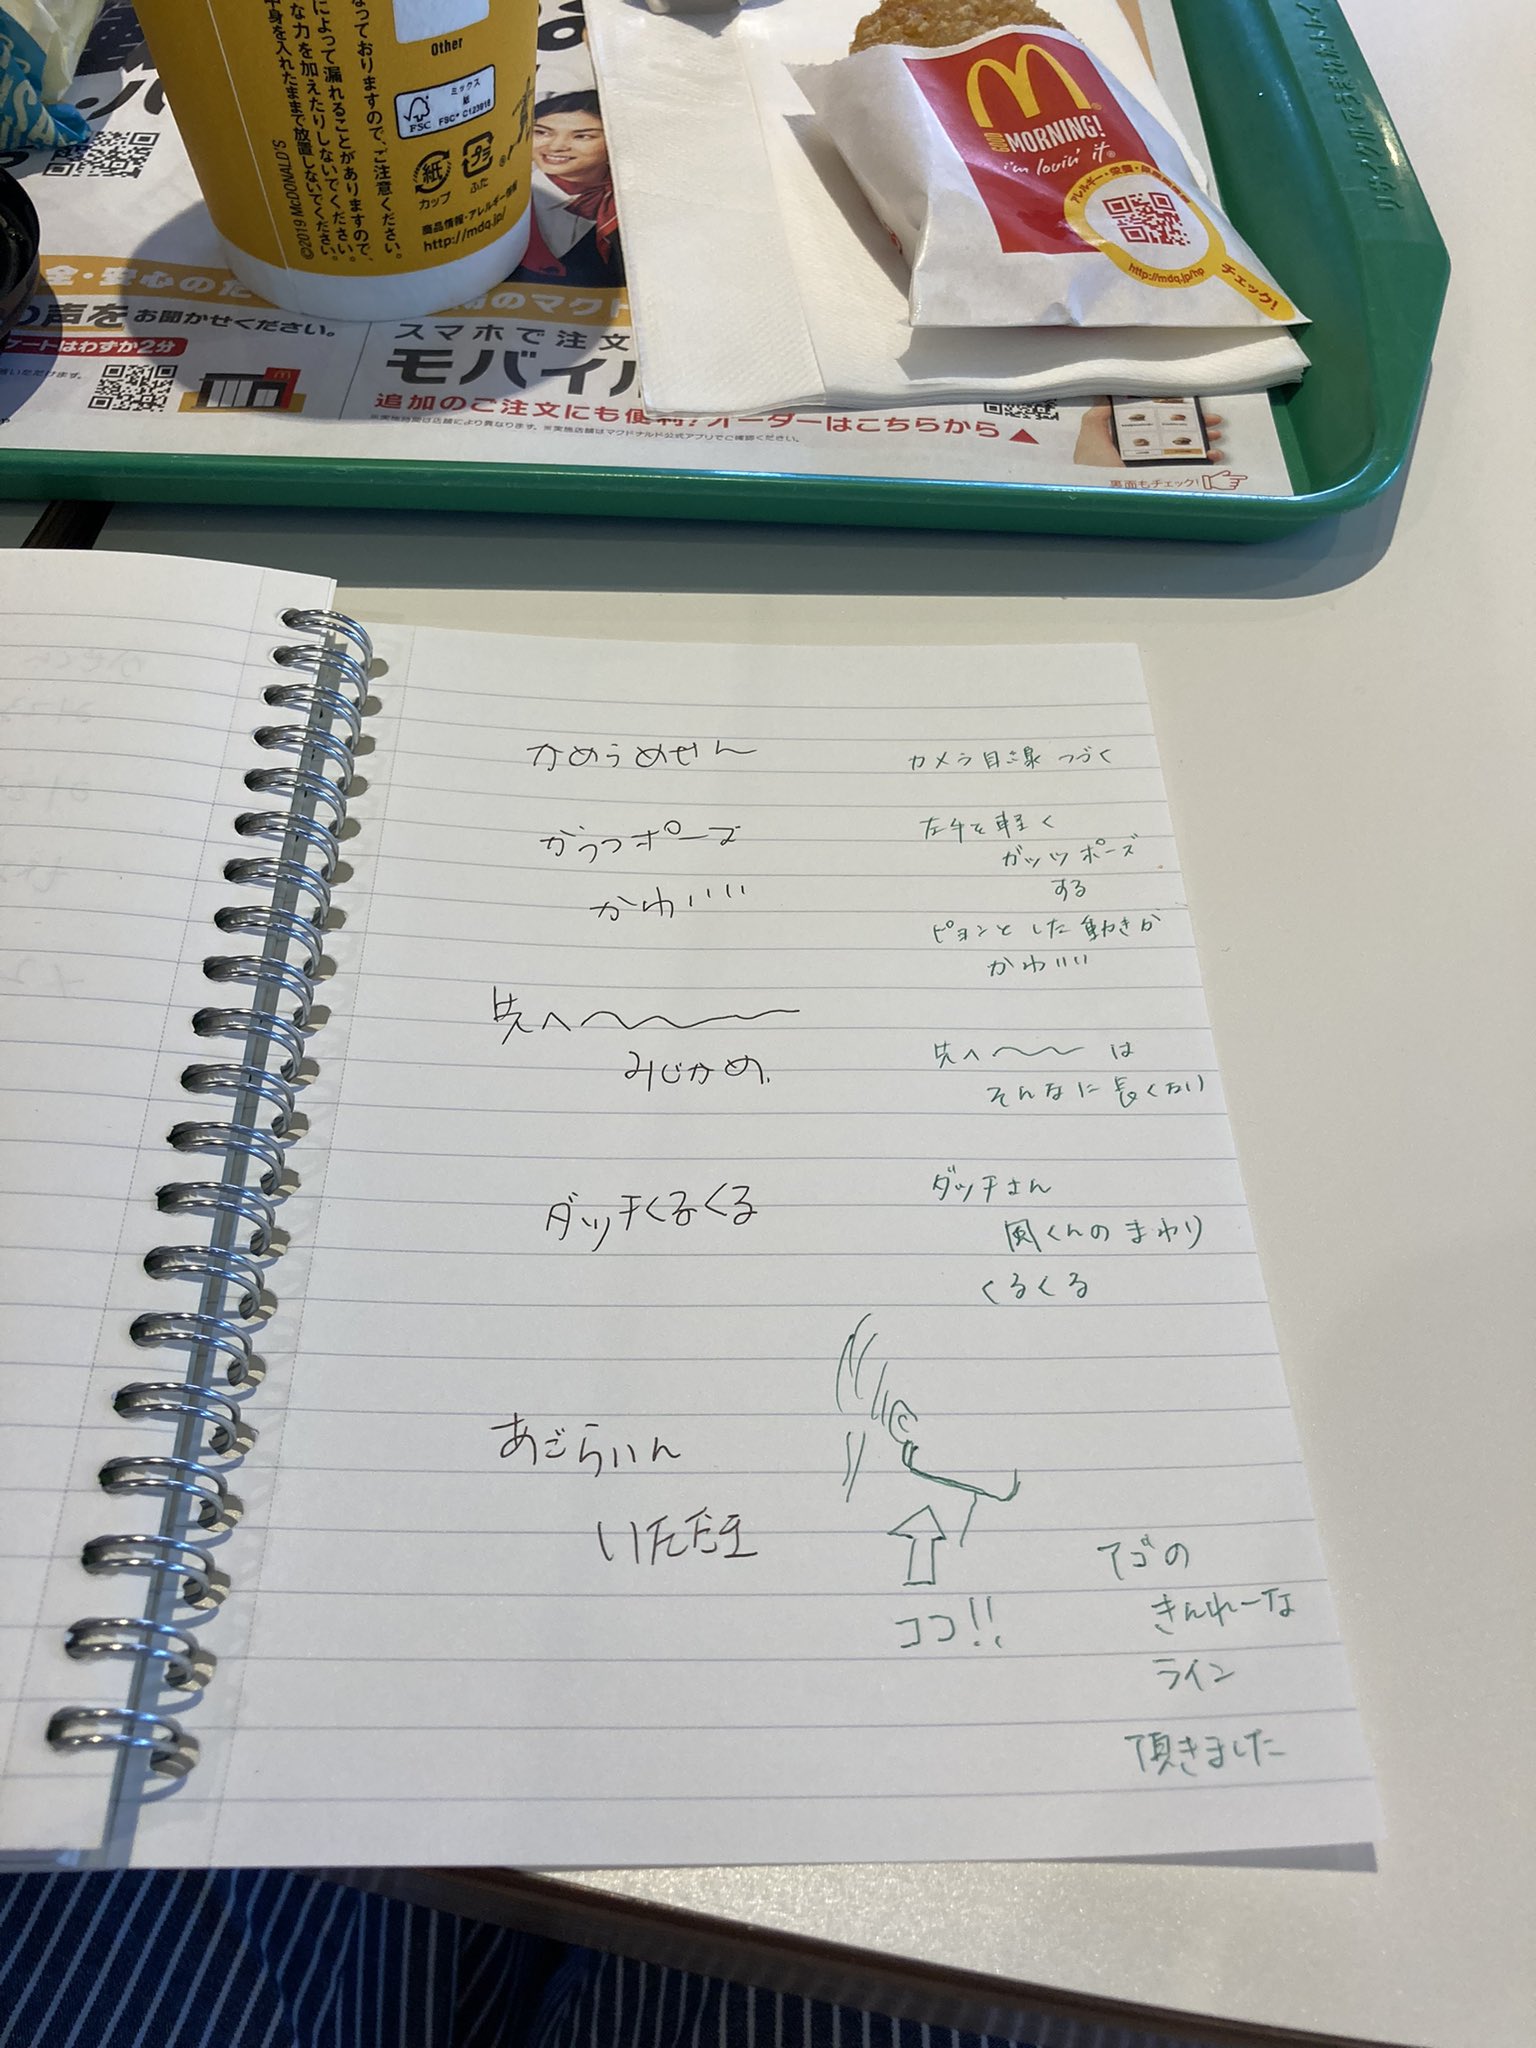 Other
なっておりますので、ご注意ください。
によって漏れることがありますので、
な力を加えたりしないでください。
中身を入れたまま放置しないでください。
©2019 McDONALD'S
ミックス
紙
FSC
FSC® C123918
紙
カップ
プラ
ふた
商品情報・アレルギー情報
http://mdq.jp/
リサイクルでうまれたトレイ
M
GOOD
MORNING!
i'm lovin' it®
アレルギー・栄養・原産国情報
http://mdq.jp/hp
チェック!
全・安心のた
の声をお聞かせください。
ケートはわずか2分
のマクド
スマホで注文
モバイル
追加のご注文にも便利?オーダーはこちらから▲
※実施時間は店舗により異なります。※実施店舗はマクドナルド公式アプリでご確認ください。
裏面もチェック!
かめらめせん
カメラ目線 つづく
がっつポーズ
かわいいい
左手を軽く
ガッツポーズ
する
ピョンとした動きが
かわいいい
先へ〜〜〜
みじかめ、
先へ〜〜 は
そんなに長くない
ダッチくるくる
ダッチさん
風くんのまわり
くるくる
あごらいん
いただま
ココ!!
アゴの
きんれーな
ライン
頂きました